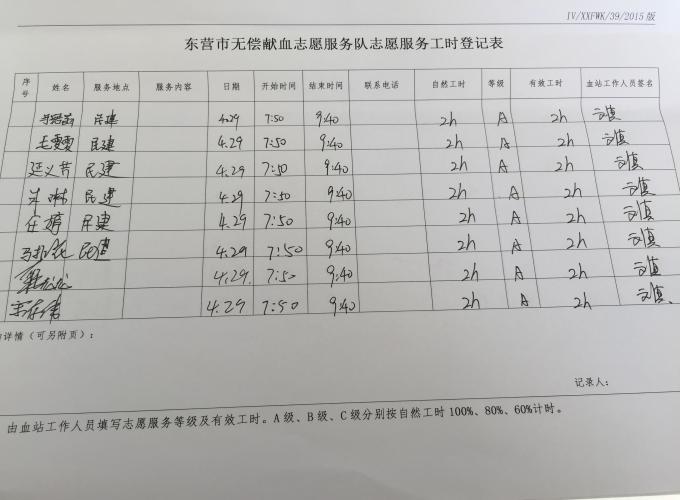 IV/XXFWK/39/2015版
东营市无偿献血志愿服务队志愿服务工时登记表
序号 姓名 服务地点 服务内容 日期 开始时间 结束时间 联系电话 自然工时 等级 有效工时 血站工作人员签名
民建 4.29 7:50 9:40 2h A 2h
毛雯雯 民建 4.29 7:50 9:40 2h A 2h
延义芳 民建 4.29 7:50 9:40 2h A 2h
民建 4.29 7:50 9:40 2h A 2h
任婷 民建 4.29 7:50 9:40 2h A 2h
民建 4.29 7:50 9:40 2h A 2h
4.29. 7:50 9:40 2h A 2h
4.29 7:50 9:40 2h A 2h
详情(可另附页):
记录人:
由血站工作人员填写志愿服务等级及有效工时。A级、B级、C级分别按自然工时100%、80%、60%计时。